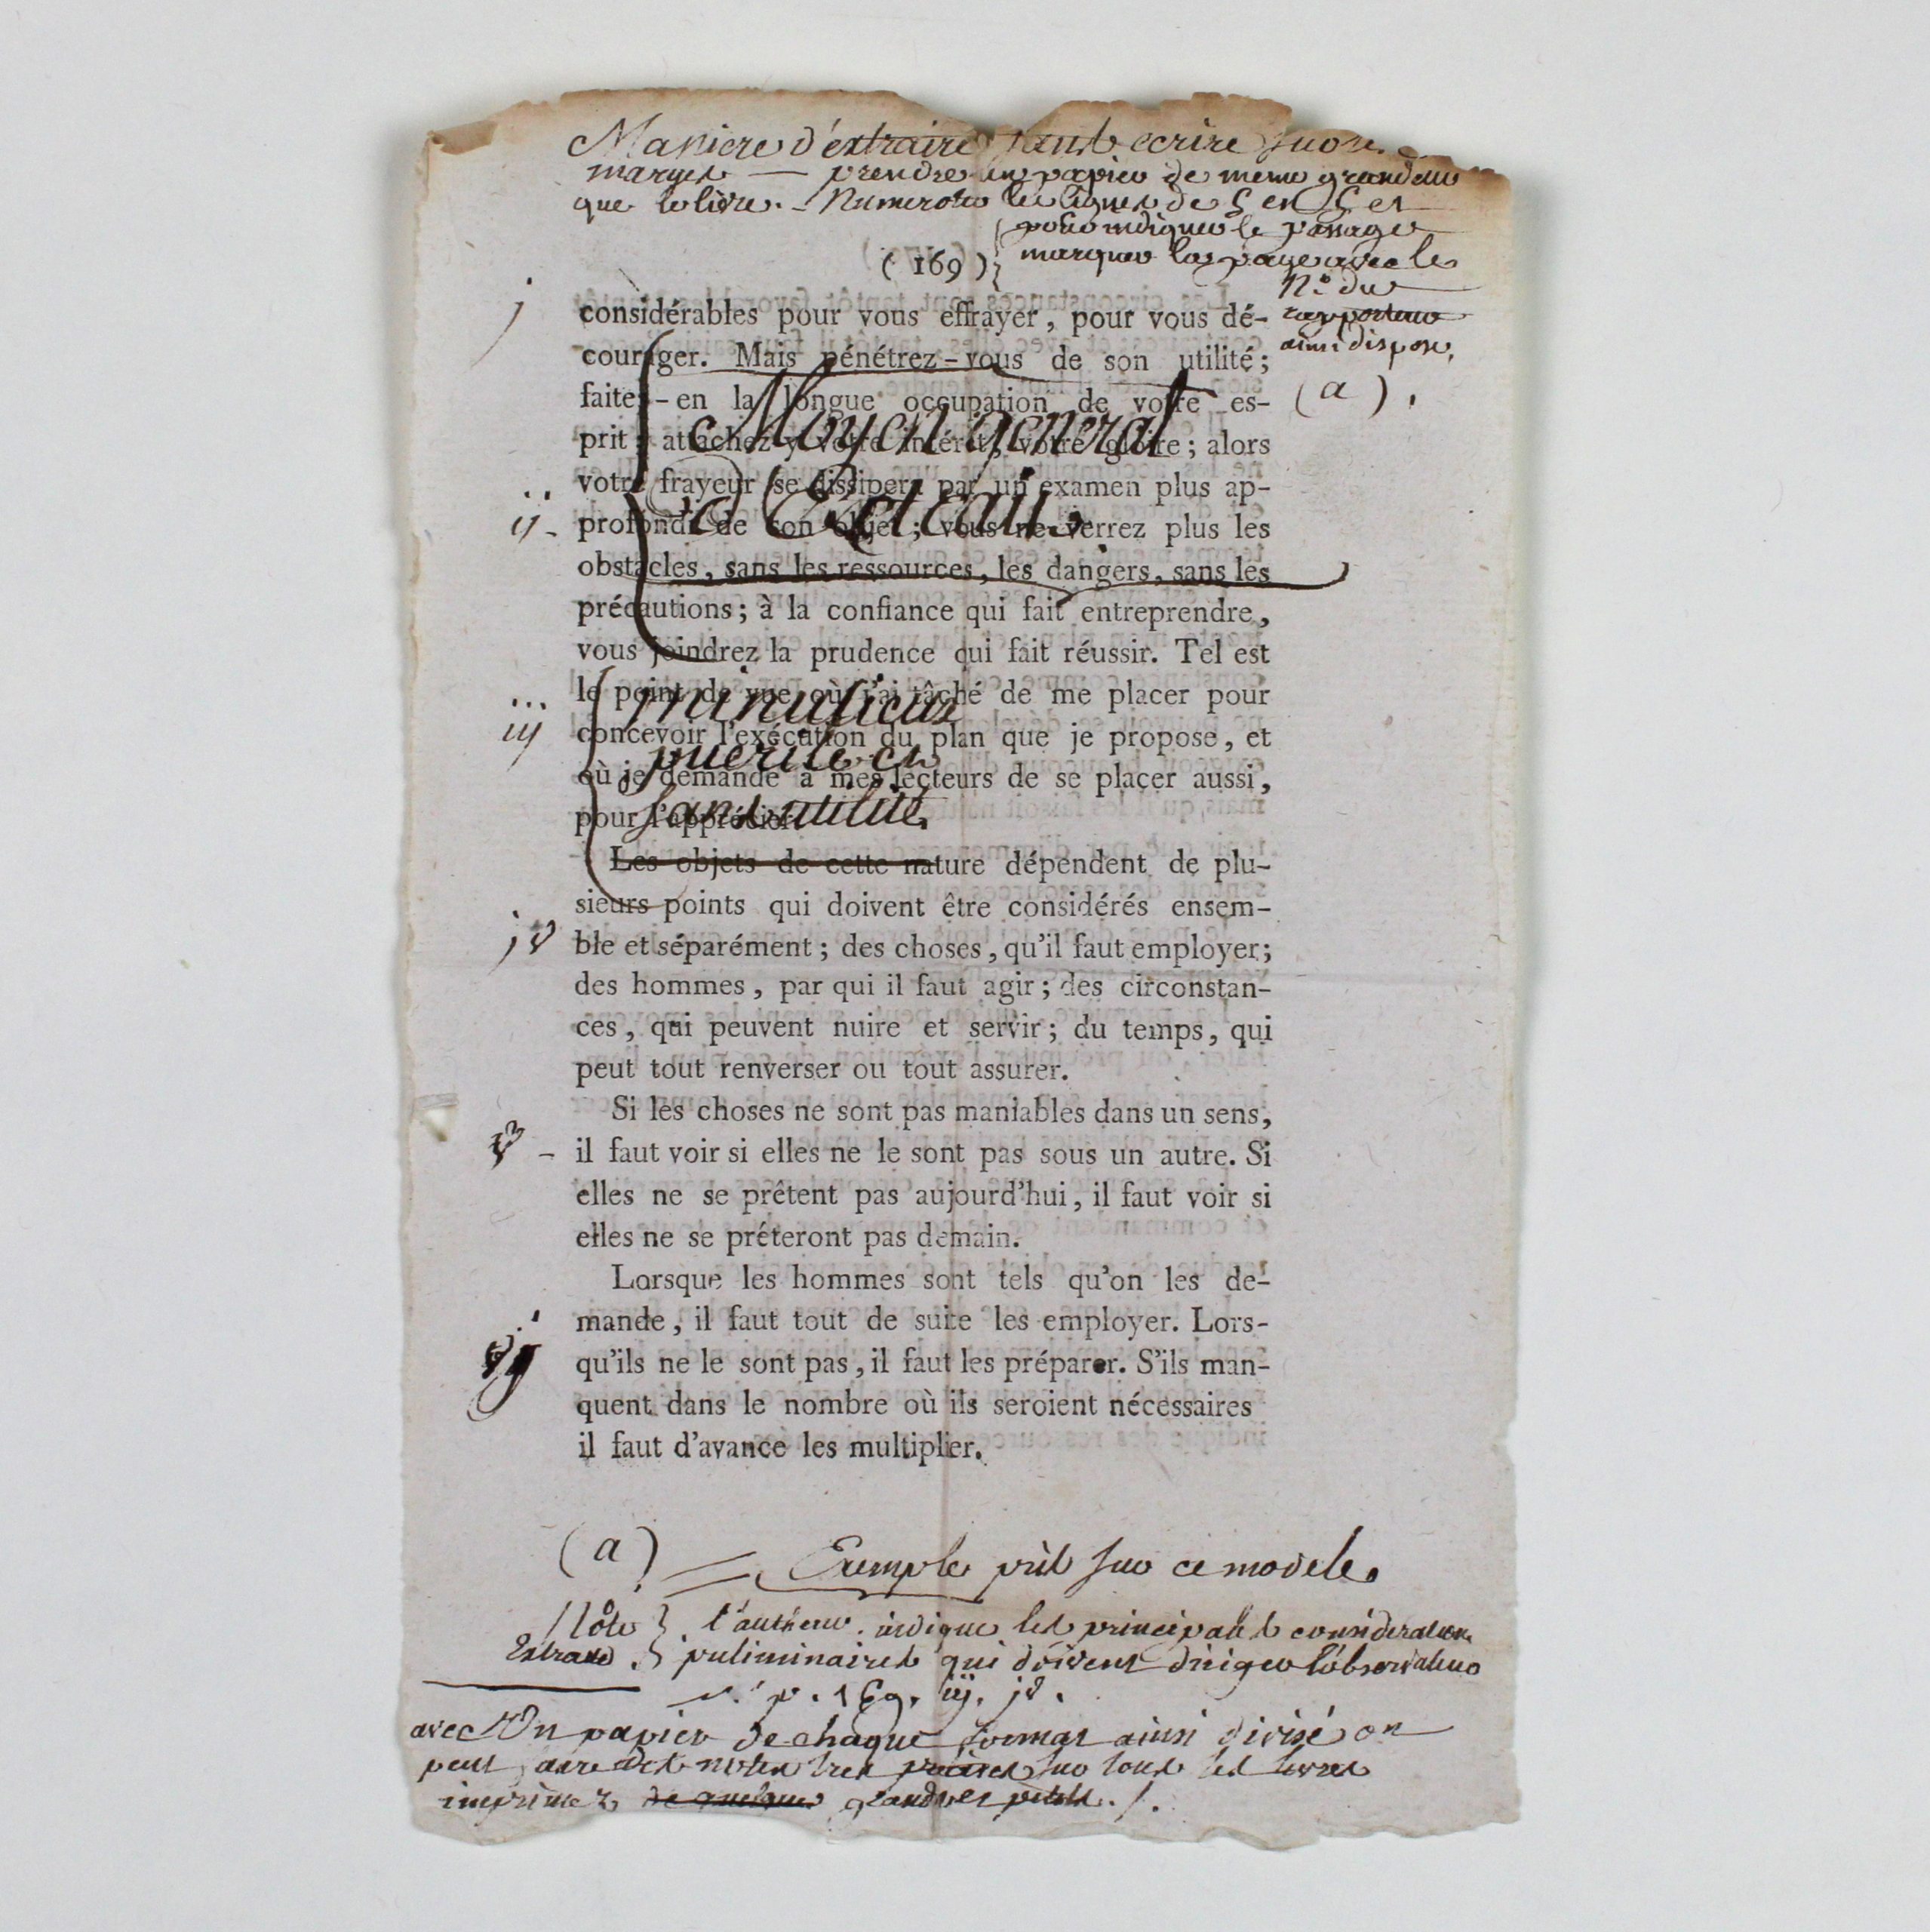 Maniere d'extraire sans ecrire sur les
marges — prendre un papier de meme grandeur
que le livre. - Numeroter les lignes de 5 en 5 et
pour indiquer le passage
( 169 ) marquer la page avec le
N.º du
j
considérables pour vous effrayer, pour vous dé-
rapporteur
ainsi disposé,
courager. Mais pénétrez-vous de son utilité;
faites-en la longue occupation de votre es-
(a).
prit; attachez-y votre intérêt, votre gloire; alors
Moyen general
votre frayeur se dissipera par un examen plus ap-
ij - profondi de son objet; vous ne verrez plus les
d'Extrait.
obstacles, sans les ressources, les dangers, sans les
précautions; à la confiance qui fait entreprendre,
vous joindrez la prudence qui fait réussir. Tel est
le point de vue où j'ai tâché de me placer pour
minutieux
iij concevoir l'exécution du plan que je propose, et
puerile et
où je demande à mes lecteurs de se placer aussi,
sans utilité.
pour l'apprécier.
Les objets de cette nature dépendent de plu-
sieurs points qui doivent être considérés ensem-
jv ble et séparément; des choses, qu'il faut employer;
des hommes, par qui il faut agir; des circonstan-
ces, qui peuvent nuire et servir; du temps, qui
peut tout renverser ou tout assurer.
Si les choses ne sont pas maniables dans un sens,
v - il faut voir si elles ne le sont pas sous un autre. Si
elles ne se prêtent pas aujourd'hui, il faut voir si
elles ne se préteront pas demain.
Lorsque les hommes sont tels qu'on les de-
mande, il faut tout de suite les employer. Lors-
vj qu'ils ne le sont pas, il faut les préparer. S'ils man-
quent dans le nombre où ils seroient nécessaires
il faut d'avance les multiplier.
(a) = Exemple pris sur ce modele.
Note l'autheur indique les principales considerations
Extraite. preliminaires qui doivent diriger l'observateur
v. p. 169. iij. jv.
avec Un papier de chaque format ainsi divisé on
peut faire des notes tres precises sur tous les livres
imprimez, grands et petits.